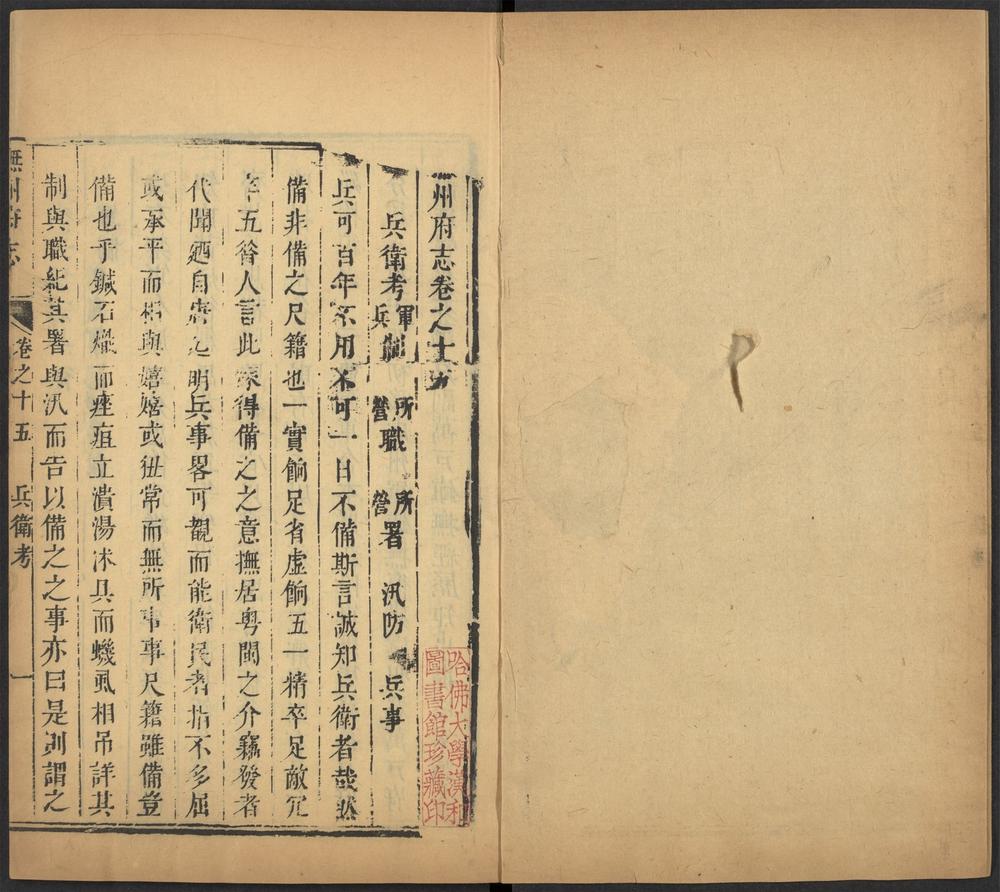 州府志卷之十五
兵衛考 軍制 兵制 所職 營職 所署 營署 汛防 兵事
兵可百年不用不可一日不備斯言誠知兵衛者哉然
備非備之尺籍也一實餉足省虛餉五一精卒足敵冗
卒五昝人言此深得備之之意撫居粵閩之介竊發者
代聞廼自唐迄明兵事畧可覩而能衛民者指不多屈
或承平而相與嬉嬉或狃常而無所事事尺籍雖備豈
備也乎鍼石熾而痤疽立潰湯沐具而蟣虱相吊詳其
制與職紀其署與汛而告以備之之事亦曰是則謂之
撫州府志 卷之十五 兵衛考 一
哈佛大學漢和
圖書館珍藏印